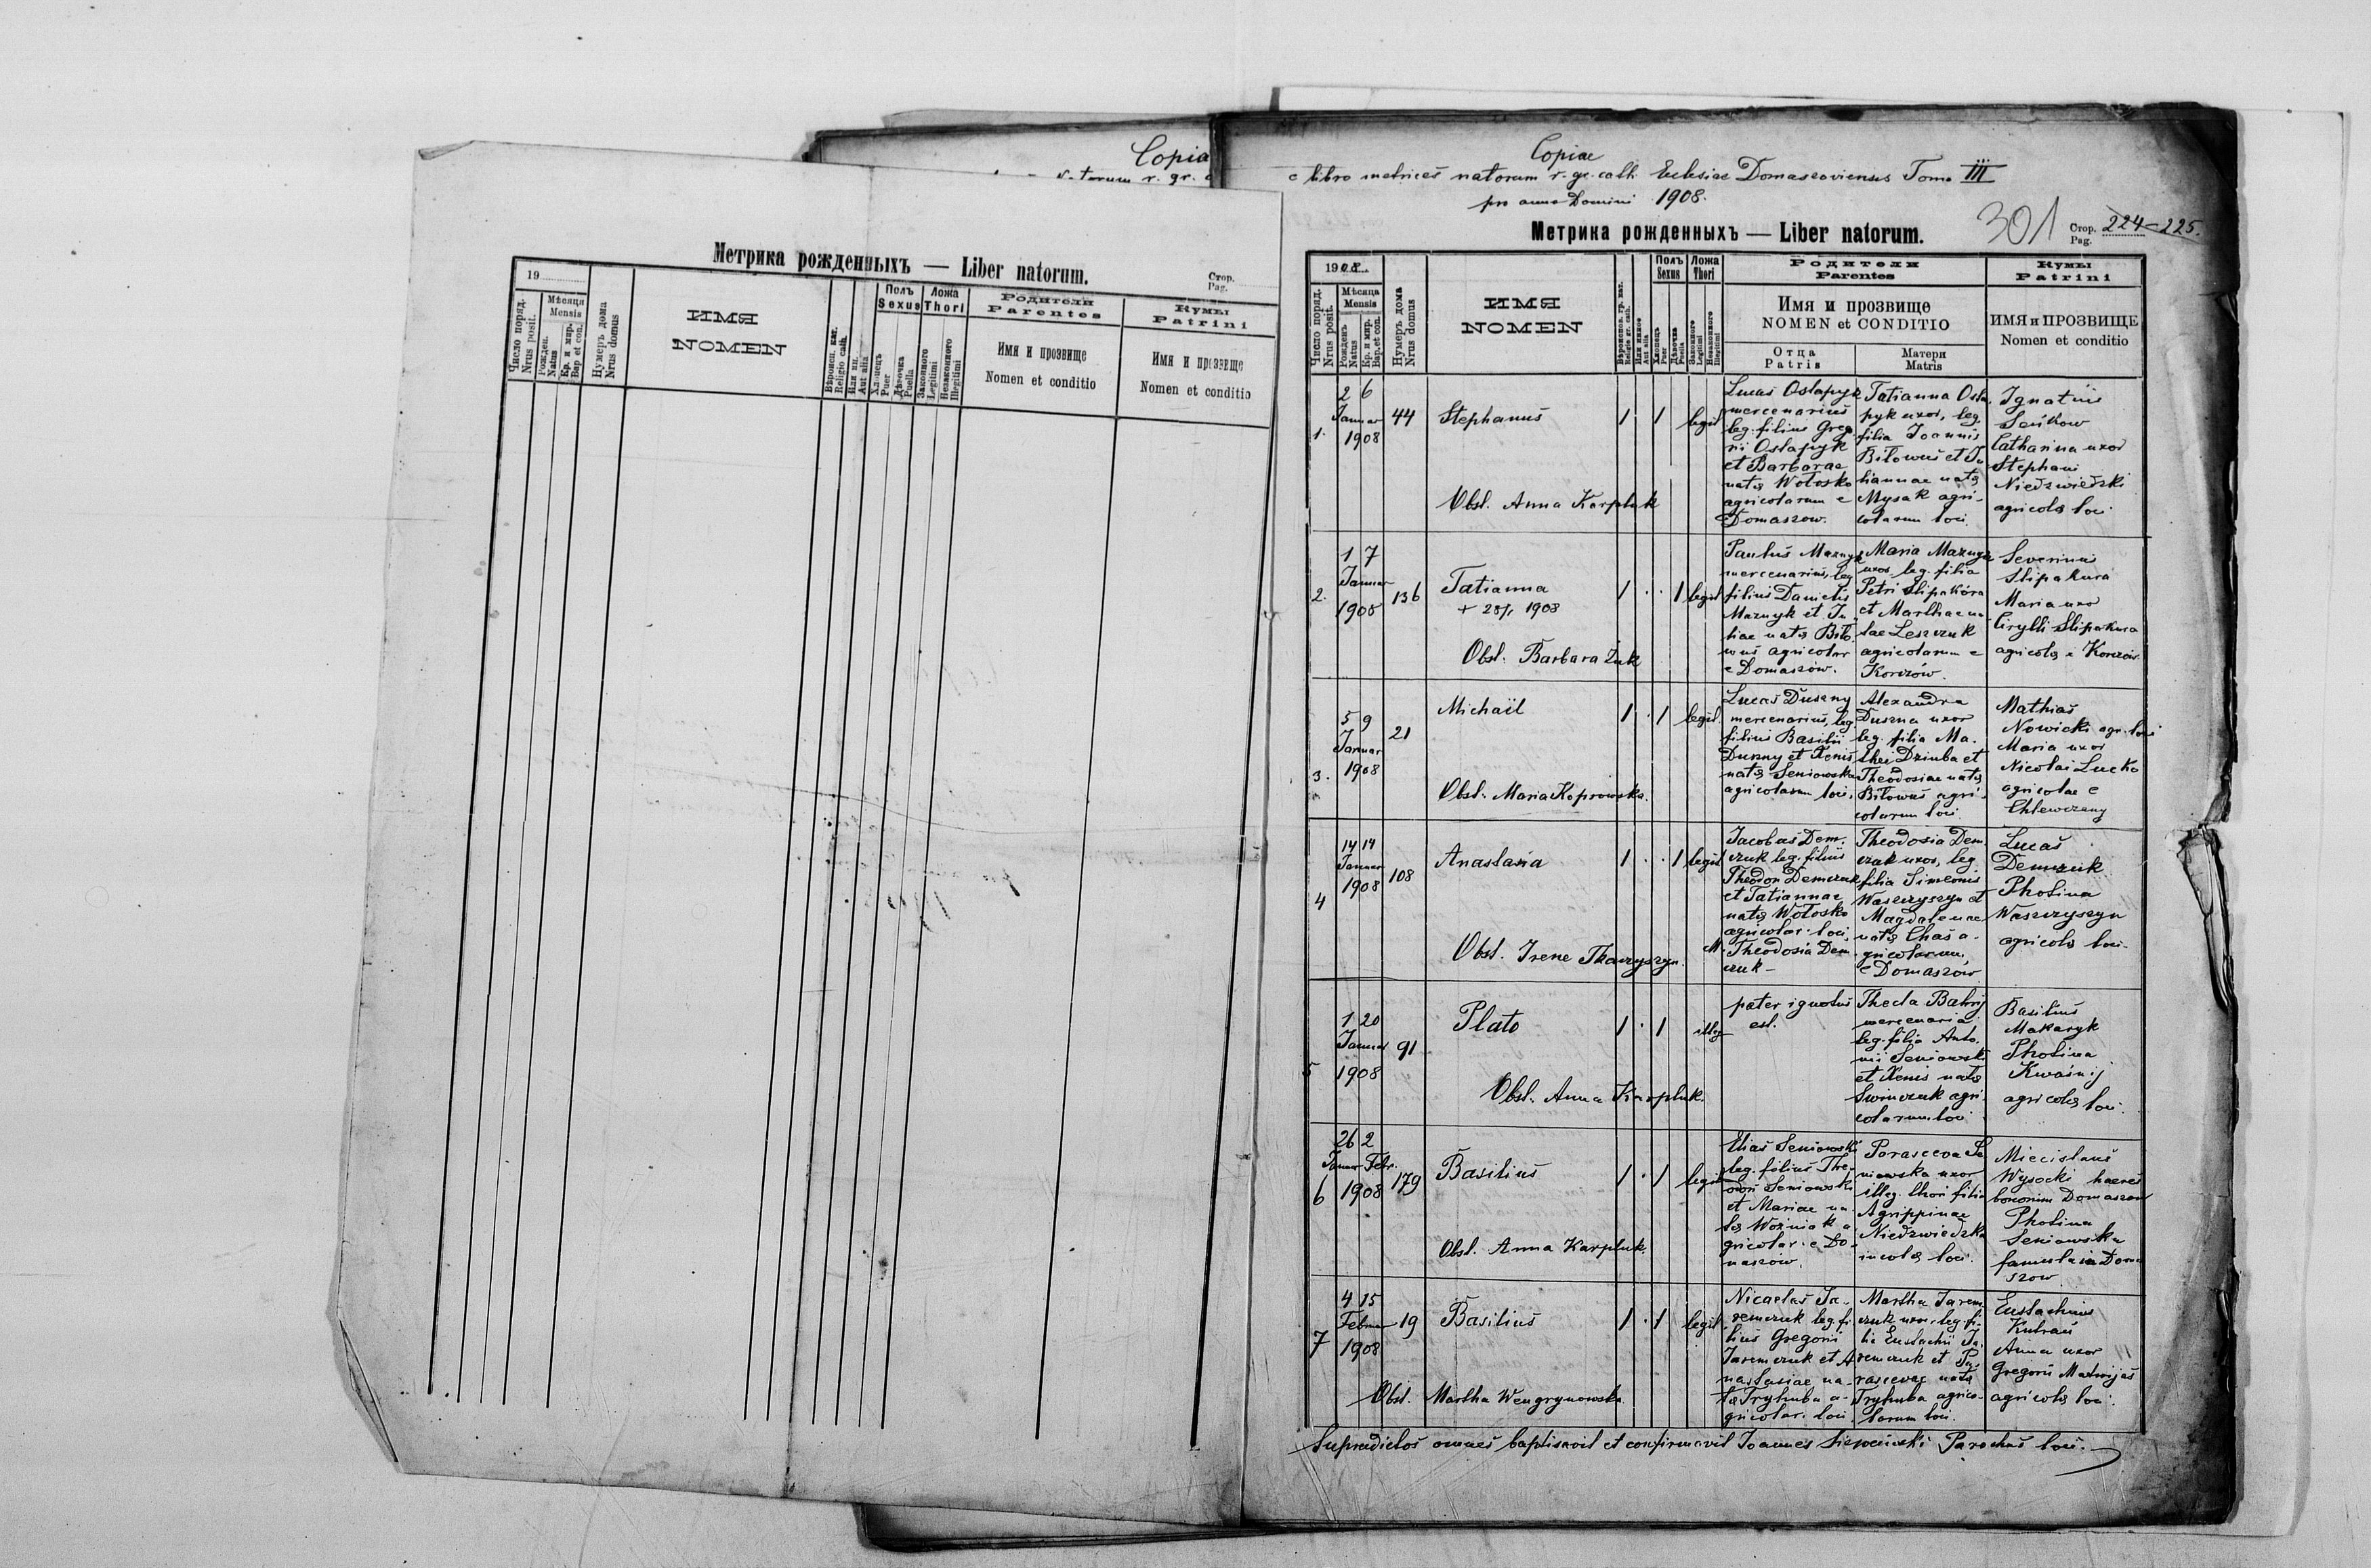 Copia
Метрика рожденныхъ — Liber natorum.
Стор.
Pag.
19
Число поряд.
Nrus posit.
Мѣсяця
Mensis
Рожден.
Natus
Кр. и мир.
Bap et con.
Нумеръ дома
Nrus domus
ИМЯ
NOMEN
Вѣроисп. кат.
Religio cath.
Или ин.
Aut alia
Полъ
Sexus
Хлопецъ
Puer
Дѣвочка
Puella
Ложа
Thori
Законного
Legitimi
Незаконного
Illegitimi
Родители
Parentes
Имя и прозвище
Nomen et conditio
Кумы
Patrini
Имя и прозвище
Nomen et conditio
Copiae
e libro metrices natorum r. gr. cath. Eclesiae Domaszoviensis Tomo III
pro anno Domini 1908.
Метрика рожденныхъ — Liber natorum.
301
Стор.
Pag.
224-225.
1908
Число поряд.
Nrus posit.
Мѣсяця
Mensis
Рожденъ
Natus
Кр. и мир.
Bap. et con.
Нумеръ дома
Nrus domus
ИМЯ
NOMEN
Вѣроиспов. гр. кат.
Religio gr. cath.
Или иннное
Aut alia
Полъ
Sexus
Хлопецъ
Puer
Дѣвочка
Puella
Ложа
Thori
Законного
Legitimi
Незаконного
Illegitimi
Родители
Parentes
Имя и прозвище
NOMEN et CONDITIO
Отца
Patris
Матери
Matris
Кумы
Patrini
ИМЯ и ПРОЗВИЩЕ
Nomen et conditio
1.
2 6
Januar
1908
44
Stephanus
1 1 legit
Obst. Anna Karpluk
Lucas Ostapyk
mercenarius
leg. filius Grego
rii Ostapyk
et Barbarae
natae Wołosko
agricolarum e
Domaszow.
Tatianna Osta
pyk uxor, leg.
filia Joannis
Biłowus et Ju
liannae natae
Mysak agri-
colarum loci.
Ignatius
Seńkow
Catharina uxor
Stephani
Niedzwiedzki
agricolae loci.
2.
1 7
Januar
1908
136
Tatianna
+ 28/1 1908
1 . . 1 legit
Obst. Barbara Żuk
Paulus Maznyk
mercenarius, leg
filius Danielis
Maznyk et Ju
liae natae Biło
wus agricolar
e Domaszów.
Maria Maznyk
uxor leg. filia
Petri Slipakóra
et Marthae na
tae Leszczuk
agricolarum e
Korczów.
Severinus
Slipakura
Maria uxor
Cirylli Slipakura
agricolae e Korczów
3.
5 9
Januar
1908
21
Michaïl
1 . 1 legit.
Obst. Maria Koprowska.
Lucas Duszny
mercenarius, leg
filius Basilii
Duszny et Xenis
natae Seniowska
agricolarum loci.
Alexandra
Duszna uxor
leg. filia Ma-
thei Dziuba et
Theodosiae natae
Biłowus agri-
colarum loci.
Mathias
Nowicki agr. loci
Maria uxor
Nicolai Lucko
agricolae e
Chlewczany
4
14 14
Januar
1908
108
Anastasia
1 . . 1 legit
Obst. Irene Tkaczyszyn.
Jacobus Dem-
czuk leg. filius
Theodor Demczuk
et Tatiannae
natae Wołosko
agricolar. loci,
M. Theodosia Dem
czuk -
Theodosia Dem
czuk uxor, leg
filia Simeonis
Waszczyszyn et
Magdalenae
natae Chaś a-
gricolarum,
e Domaszów
Lucas
Demczuk
Photina
Waszczyszyn
agricolae loci.
5
1 20
Januar
1908
91
Plato
1 . 1 illeg
Obst. Anna Karpluk.
pater ignotus
est.
Thecla Bahrij
mercenaria
leg. filia Anto-
nii Seniowski
et Xenis natae
Swinczuk agri
colarum loci
Basilius
Makaryk
Photina
Kwaśnij
agricolae loci.
6
26 2
Januar Febr.
1908
179
Basilius
1 . 1 legit
Obst. Anna Karpluk.
Elias Seniowski
leg. filius The-
odori Seniowski
et Mariae na
tae Woźniak a
gricolar. e Do-
maszow.
Parasceva Se
niowska uxor
illeg. thori filia
Agrippinae
Niedzwiedzka
incolae loci.
Miecislaus
Wysocki haeres
bonorum Domaszow
Photina
Seniowska
famula in Doma
szow
7
4 15
Februar
1908
19
Basilius
1 . 1 legit.
Obst. Martha Wengrynowska.
Nicaelas Ja-
remczuk leg. fi
lius Gregorii
Jaremczuk et A
nastasiae na-
ta Tryhuba a-
gricolar. loci
Martha Jarem
czuk uxor, leg. fi-
lia Eustachii Ja
remczuk et Pa-
rascevae natae
Tryhuba agrico-
larum loci.
Eustachius
Kuhraś
Anna uxor
Gregorii Matwijas
agricolae loci.
Supradictos omnes baptisavit et confirmavit Joannes Parochus loci.